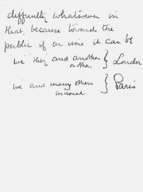 difficulty whatsoever in
that, because towards the
public if an mine it can be
we then and another } London
or other
we and many other } Paris